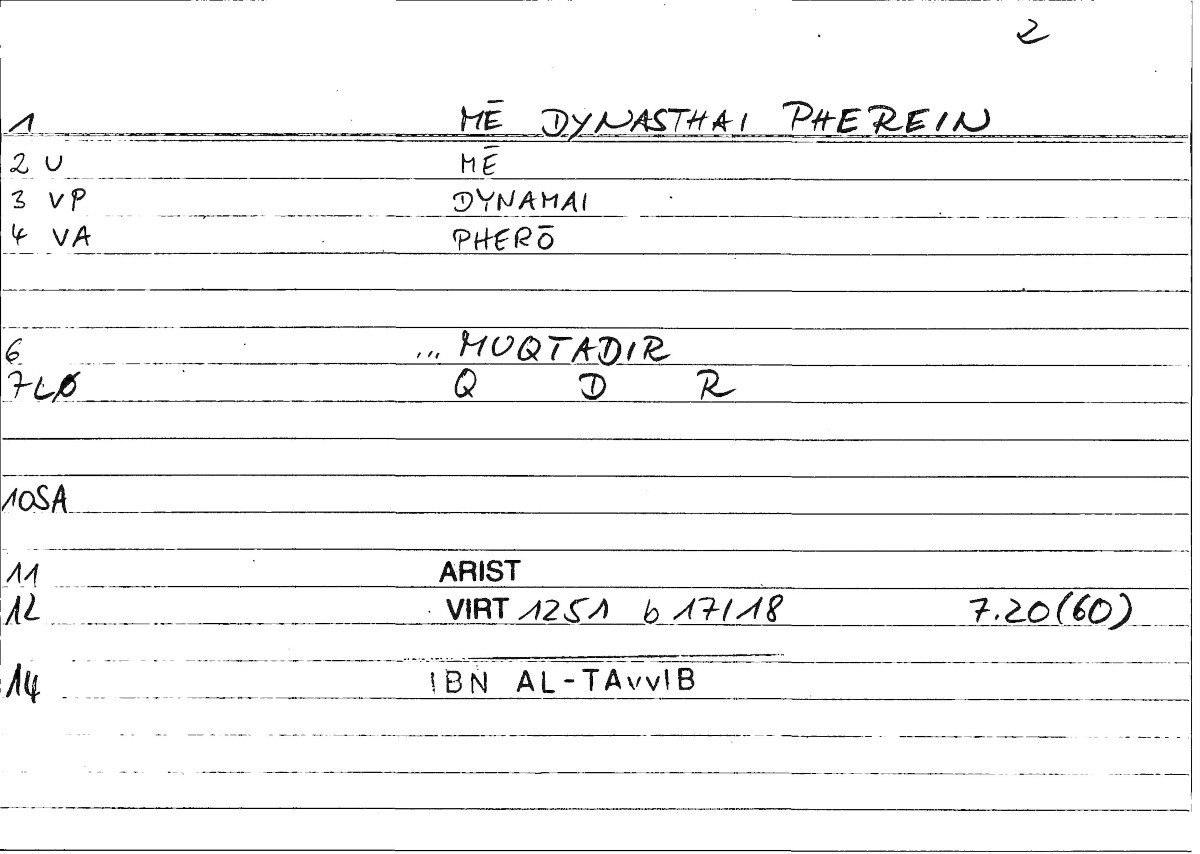 2
1 MĒ DYNASTHAI PHEREIN
2 U MĒ
3 VP DYNAMAI
4 VA PHERŌ
6 ... MUQTADIR
7LØ Q D R
10SA
11 ARIST
12 VIRT 1251 b 17/18 7.20(60)
14 IBN AL-TAvvIB